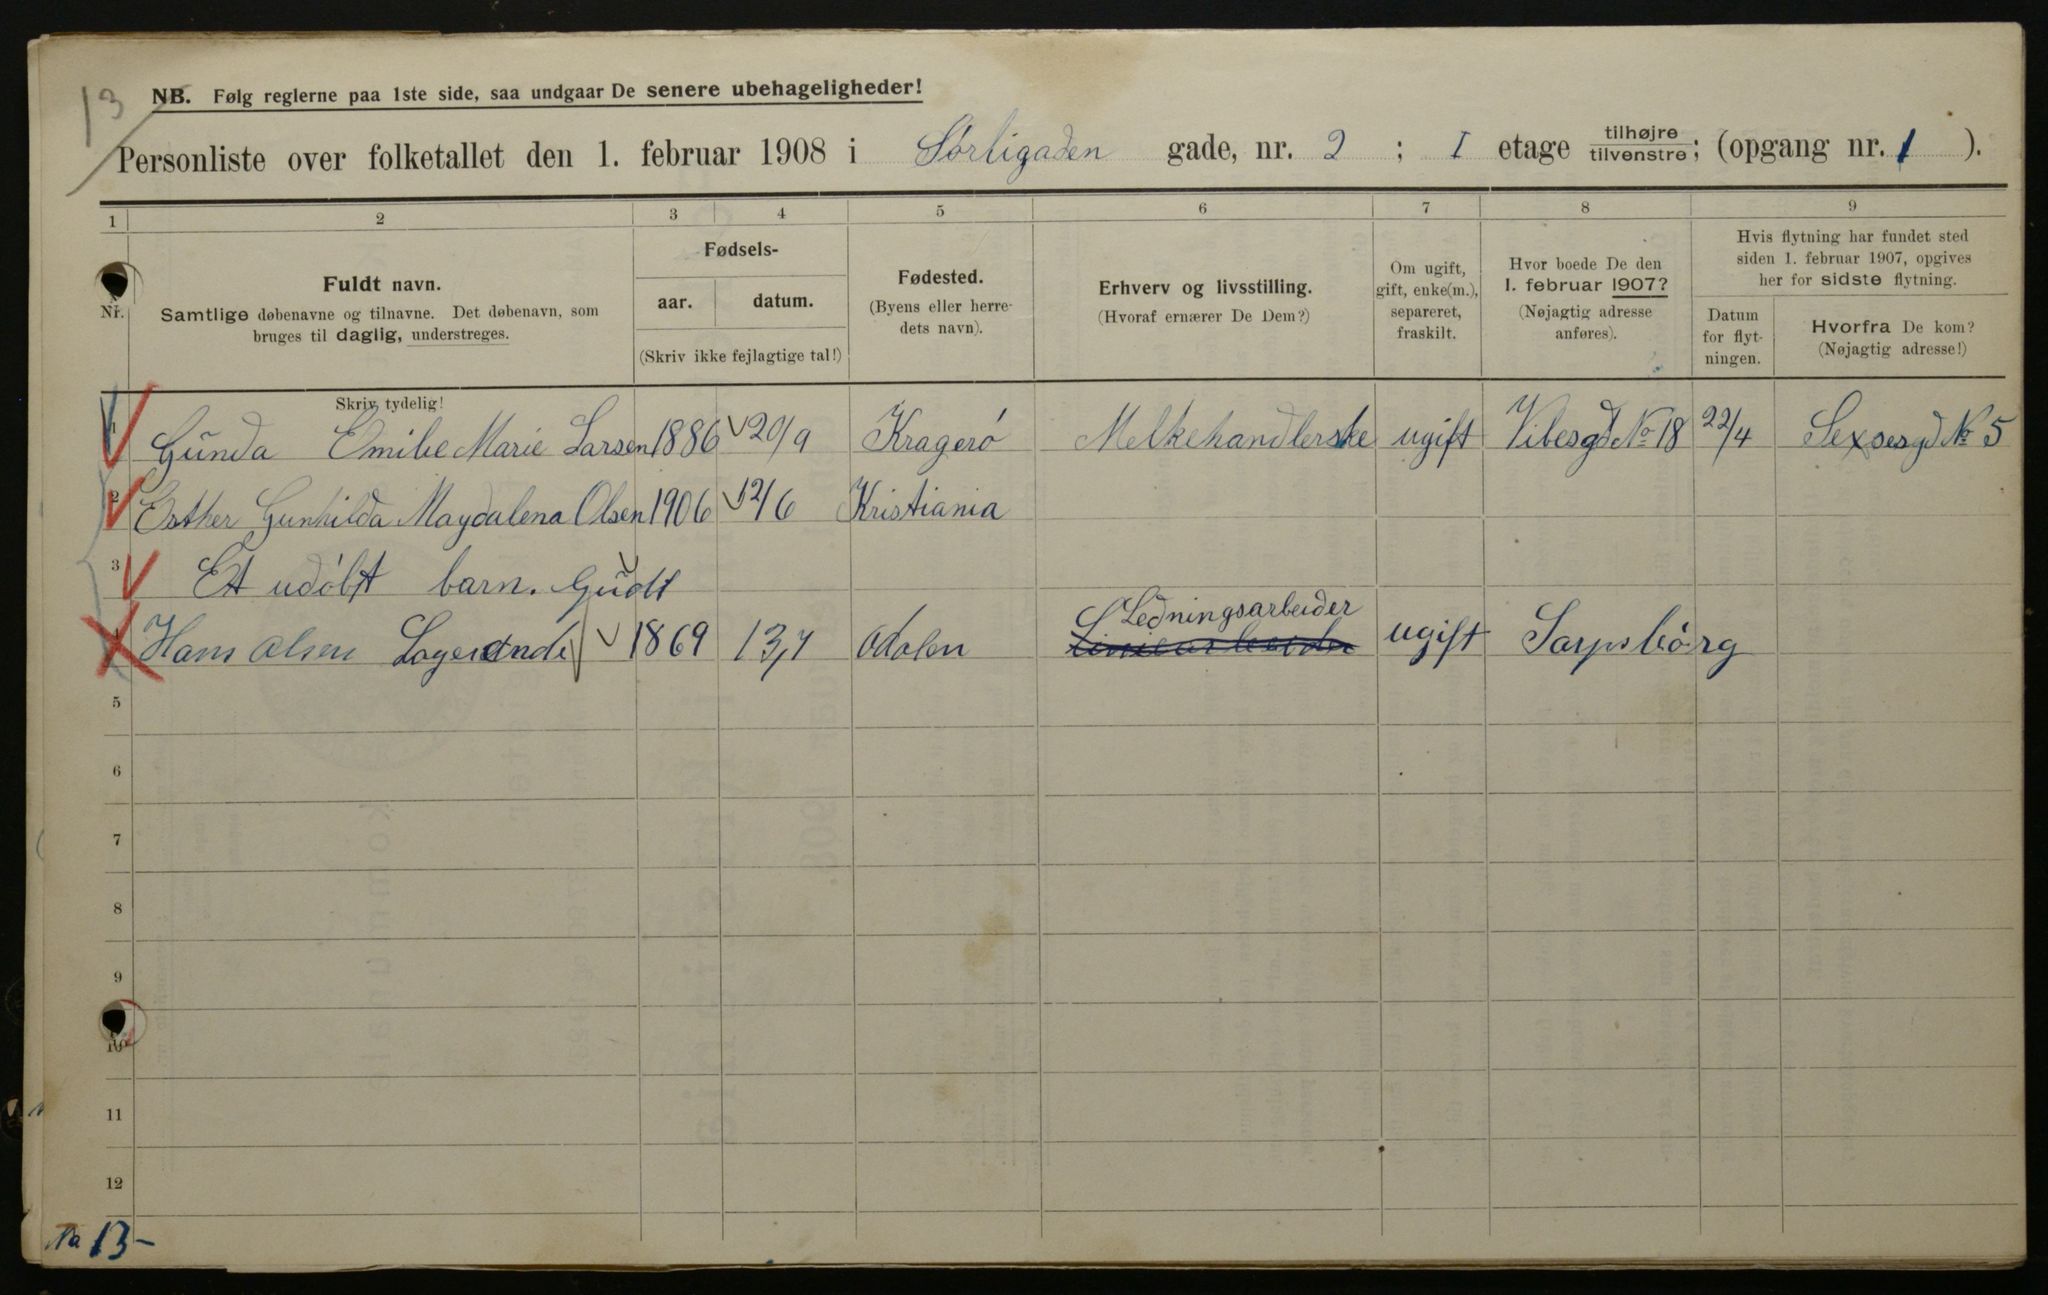 13
NB. Følg reglerne paa 1ste side, saa undgaar De senere ubehageligheder!
Personliste over folketallet den 1. februar 1908 i Sørligaden gade, nr. 2 ; I etage tilhøjre tilvenstre; (opgang nr. 1 ).
1 2 3 4 5 6 7 8 9
Nr.
Fuldt navn.
Samtlige døbenavne og tilnavne. Det døbenavn, som
bruges til daglig, understreges.
Skriv tydelig!
Fødsels-
aar. datum.
(Skriv ikke fejlagtige tal!)
Fødested.
(Byens eller herre-
dets navn).
Erhverv og livsstilling.
(Hvoraf ernærer De Dem?)
Om ugift,
gift, enke(m.),
separeret,
fraskilt.
Hvor boede De den
1. februar 1907?
(Nøjagtig adresse
anføres).
Hvis flytning har fundet sted
siden 1. februar 1907, opgives
her for sidste flytning.
Datum
for flyt-
ningen.
Hvorfra De kom?
(Nøjagtig adresse!)
1 Gunda Emilie Marie Larsen 1886 20/9 Kragerø Melkehandlerske ugift Vibesgd No 18 22/4 Sexsesgd No 5
2 Esther Gunhilda Magdalena Olsen 1906 12/6 Kristiania
3 Et udøbt barn. Gudt
Ledningsarbeider
4 Hans Olsen 1869 13/7 Odalen ugift Sarpsborg
5
6
7
8
9
10
11
12
13-